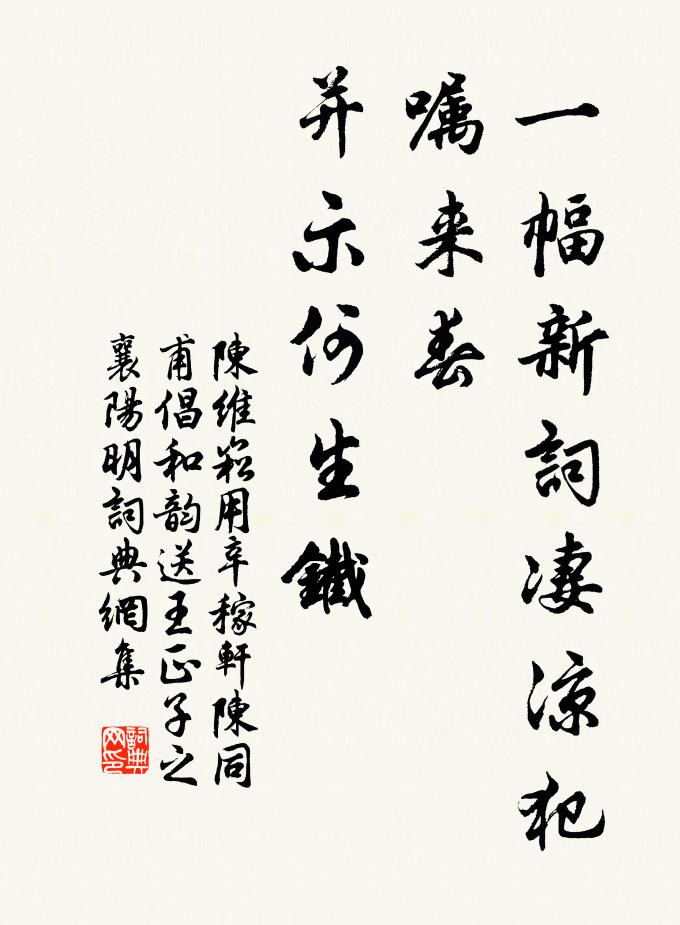 一幅新詞凄涼犯
囑来春
并示何生鐵
陳維崧用辛稼軒陳同
甫倡和韵送王正子之
襄陽明詞典網集
詞典网印